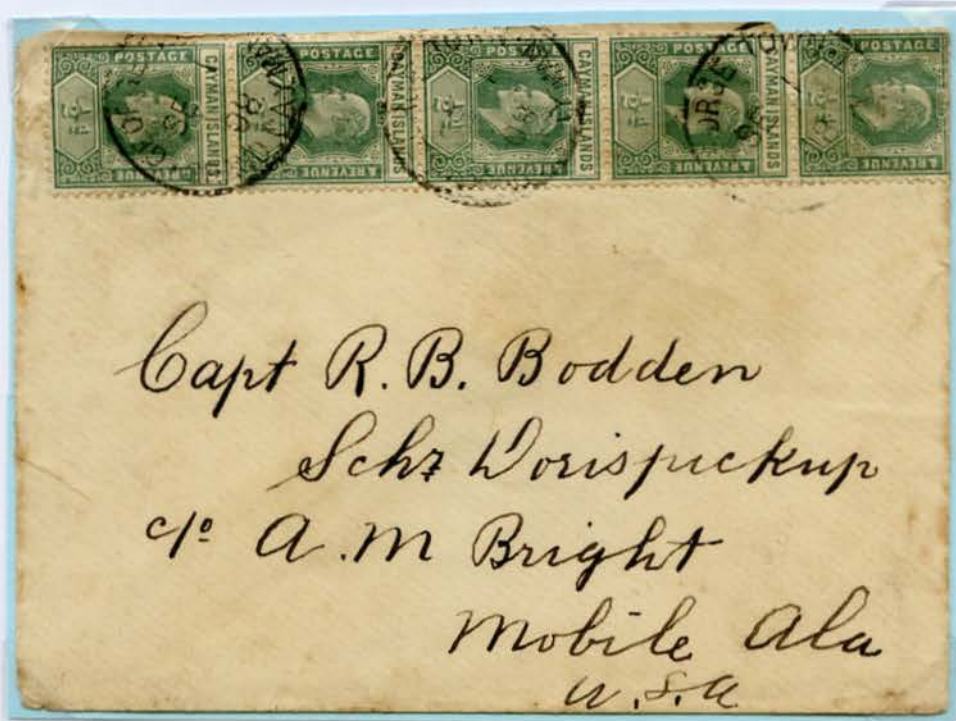 POSTAGE CAYMAN ISLANDS & REVENUE ½d
POSTAGE CAYMAN ISLANDS & REVENUE ½d
POSTAGE CAYMAN ISLANDS & REVENUE ½d
POSTAGE CAYMAN ISLANDS & REVENUE ½d
POSTAGE & REVENUE
Capt R. B. Bodden
Schr Dorispickup
c/o A. M Bright
Mobile Ala
U.S.A